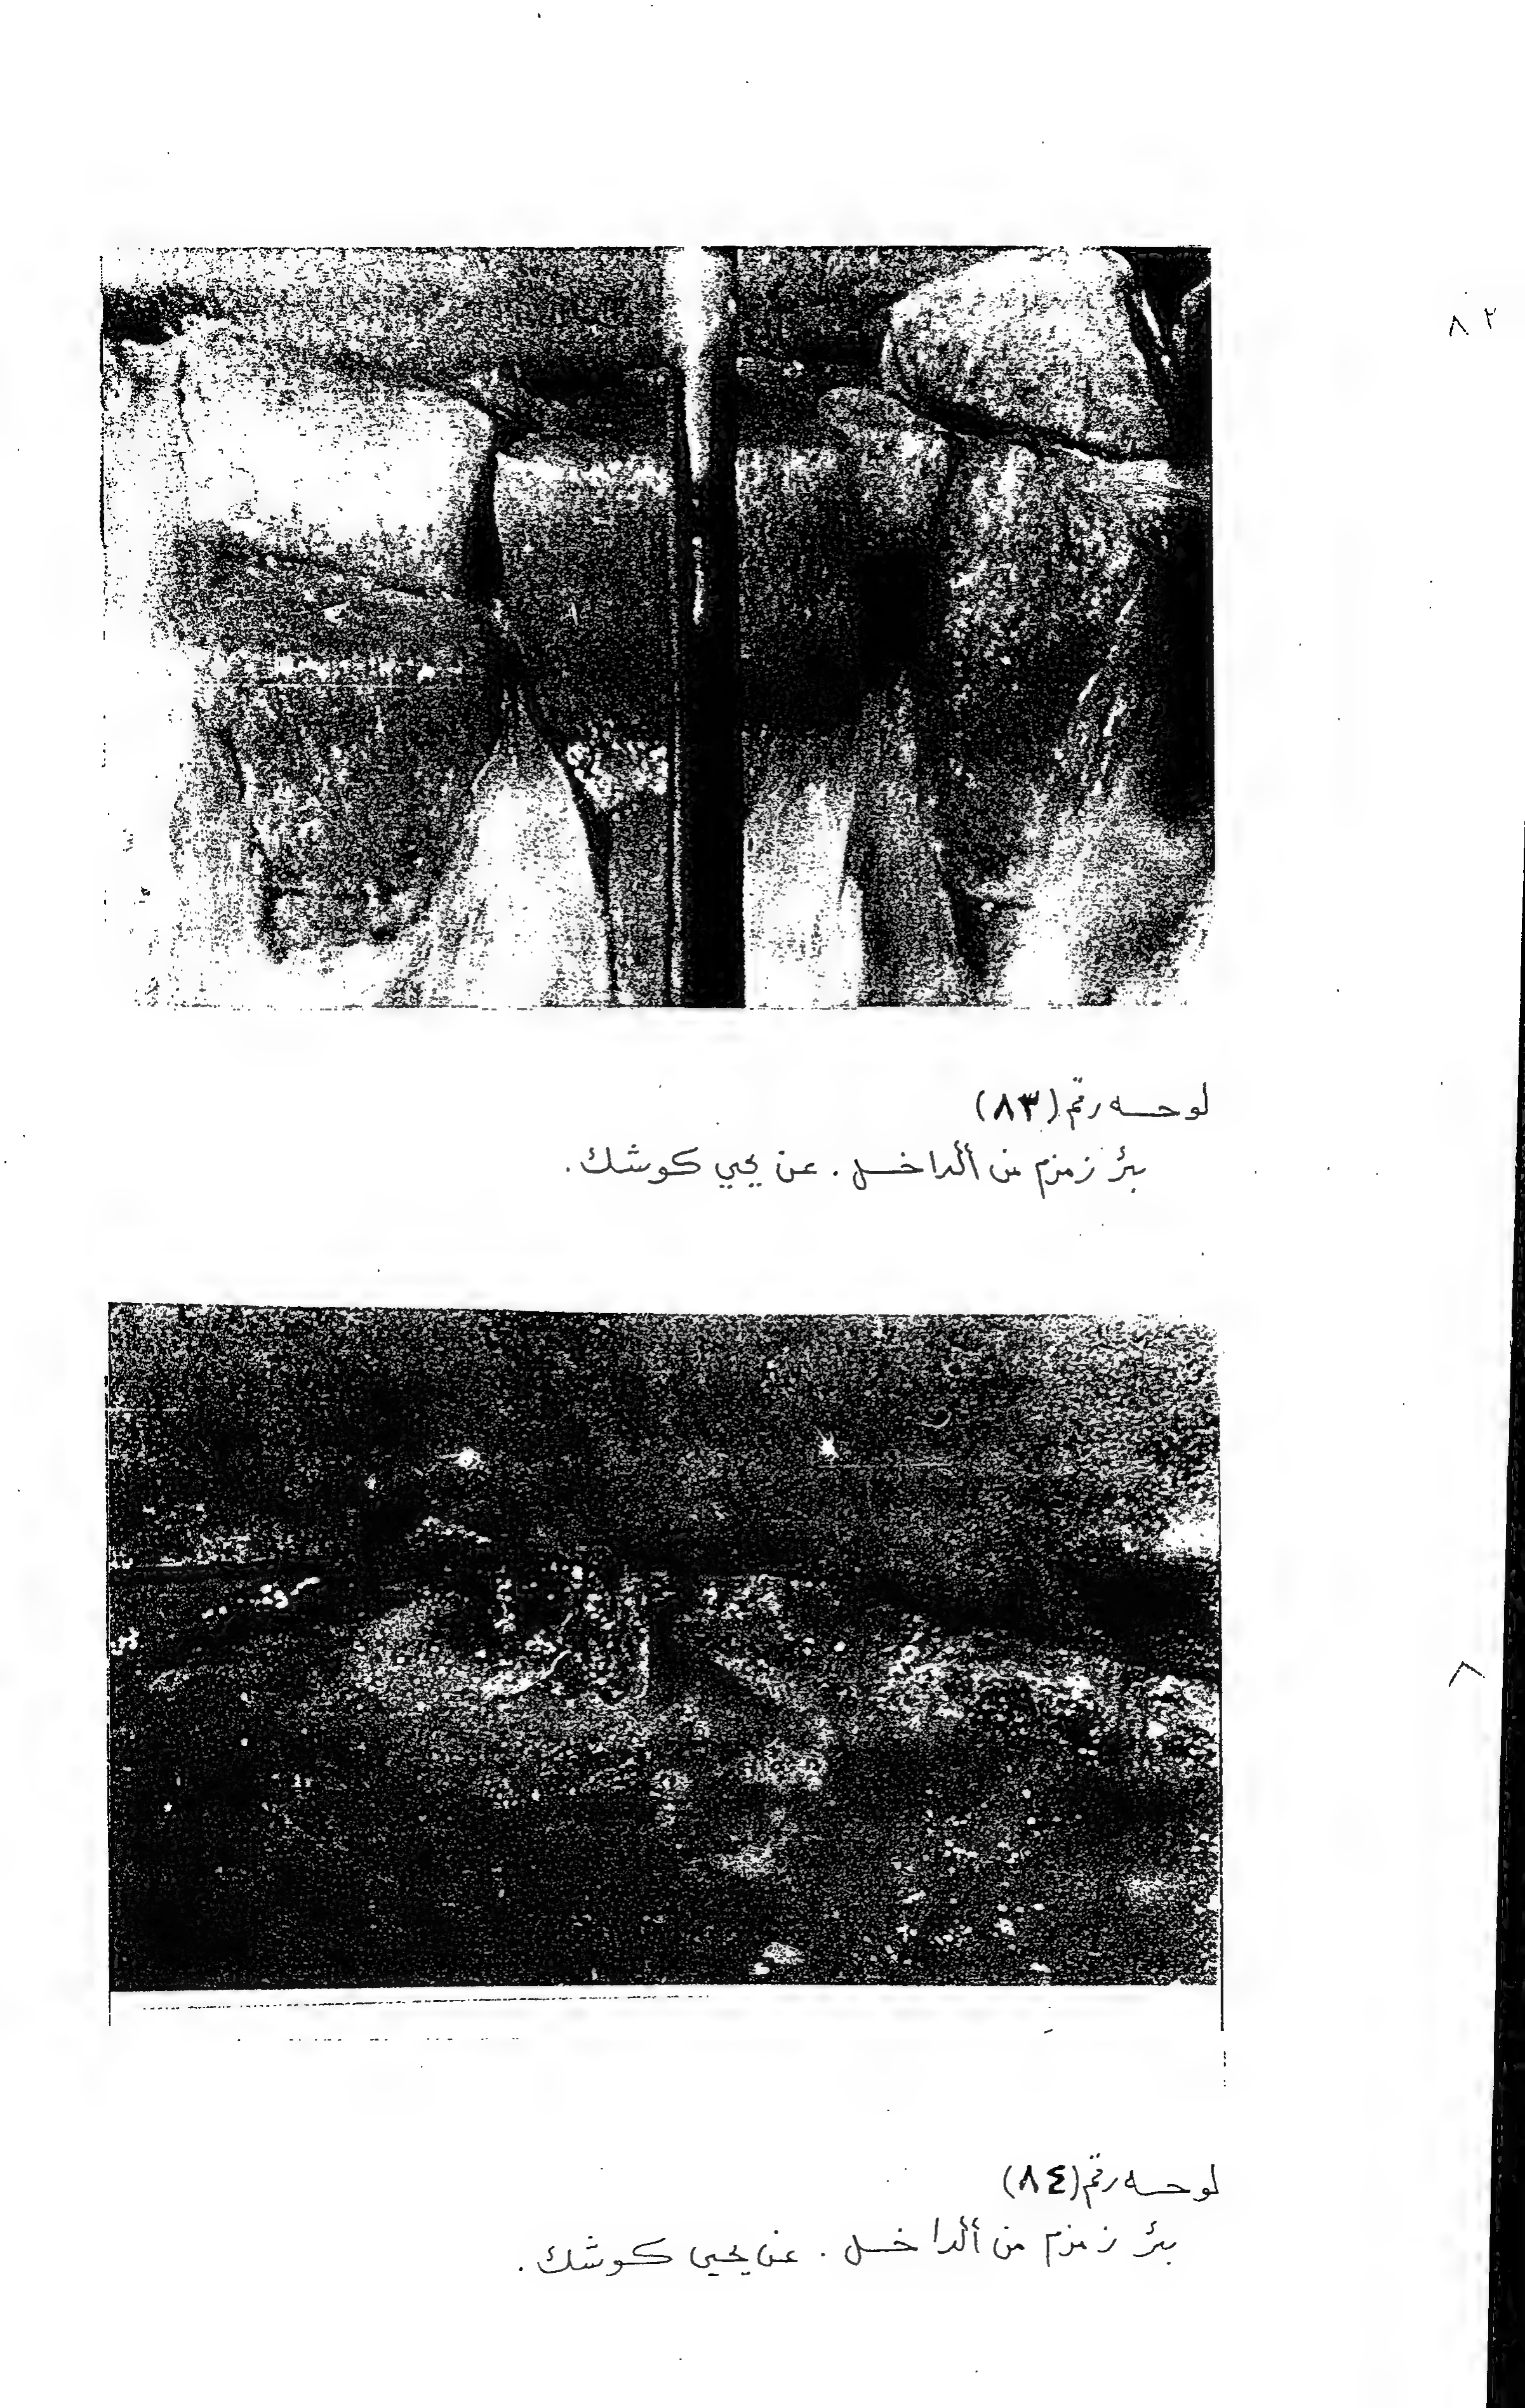 ٨٢
لوحه رقم (٨٣)
بئر زمزم من الداخل . عن يحيي كوشك .
٨
لوحه رقم (٨٤)
بئر زمزم من الداخل . عن يحيى كوشك .